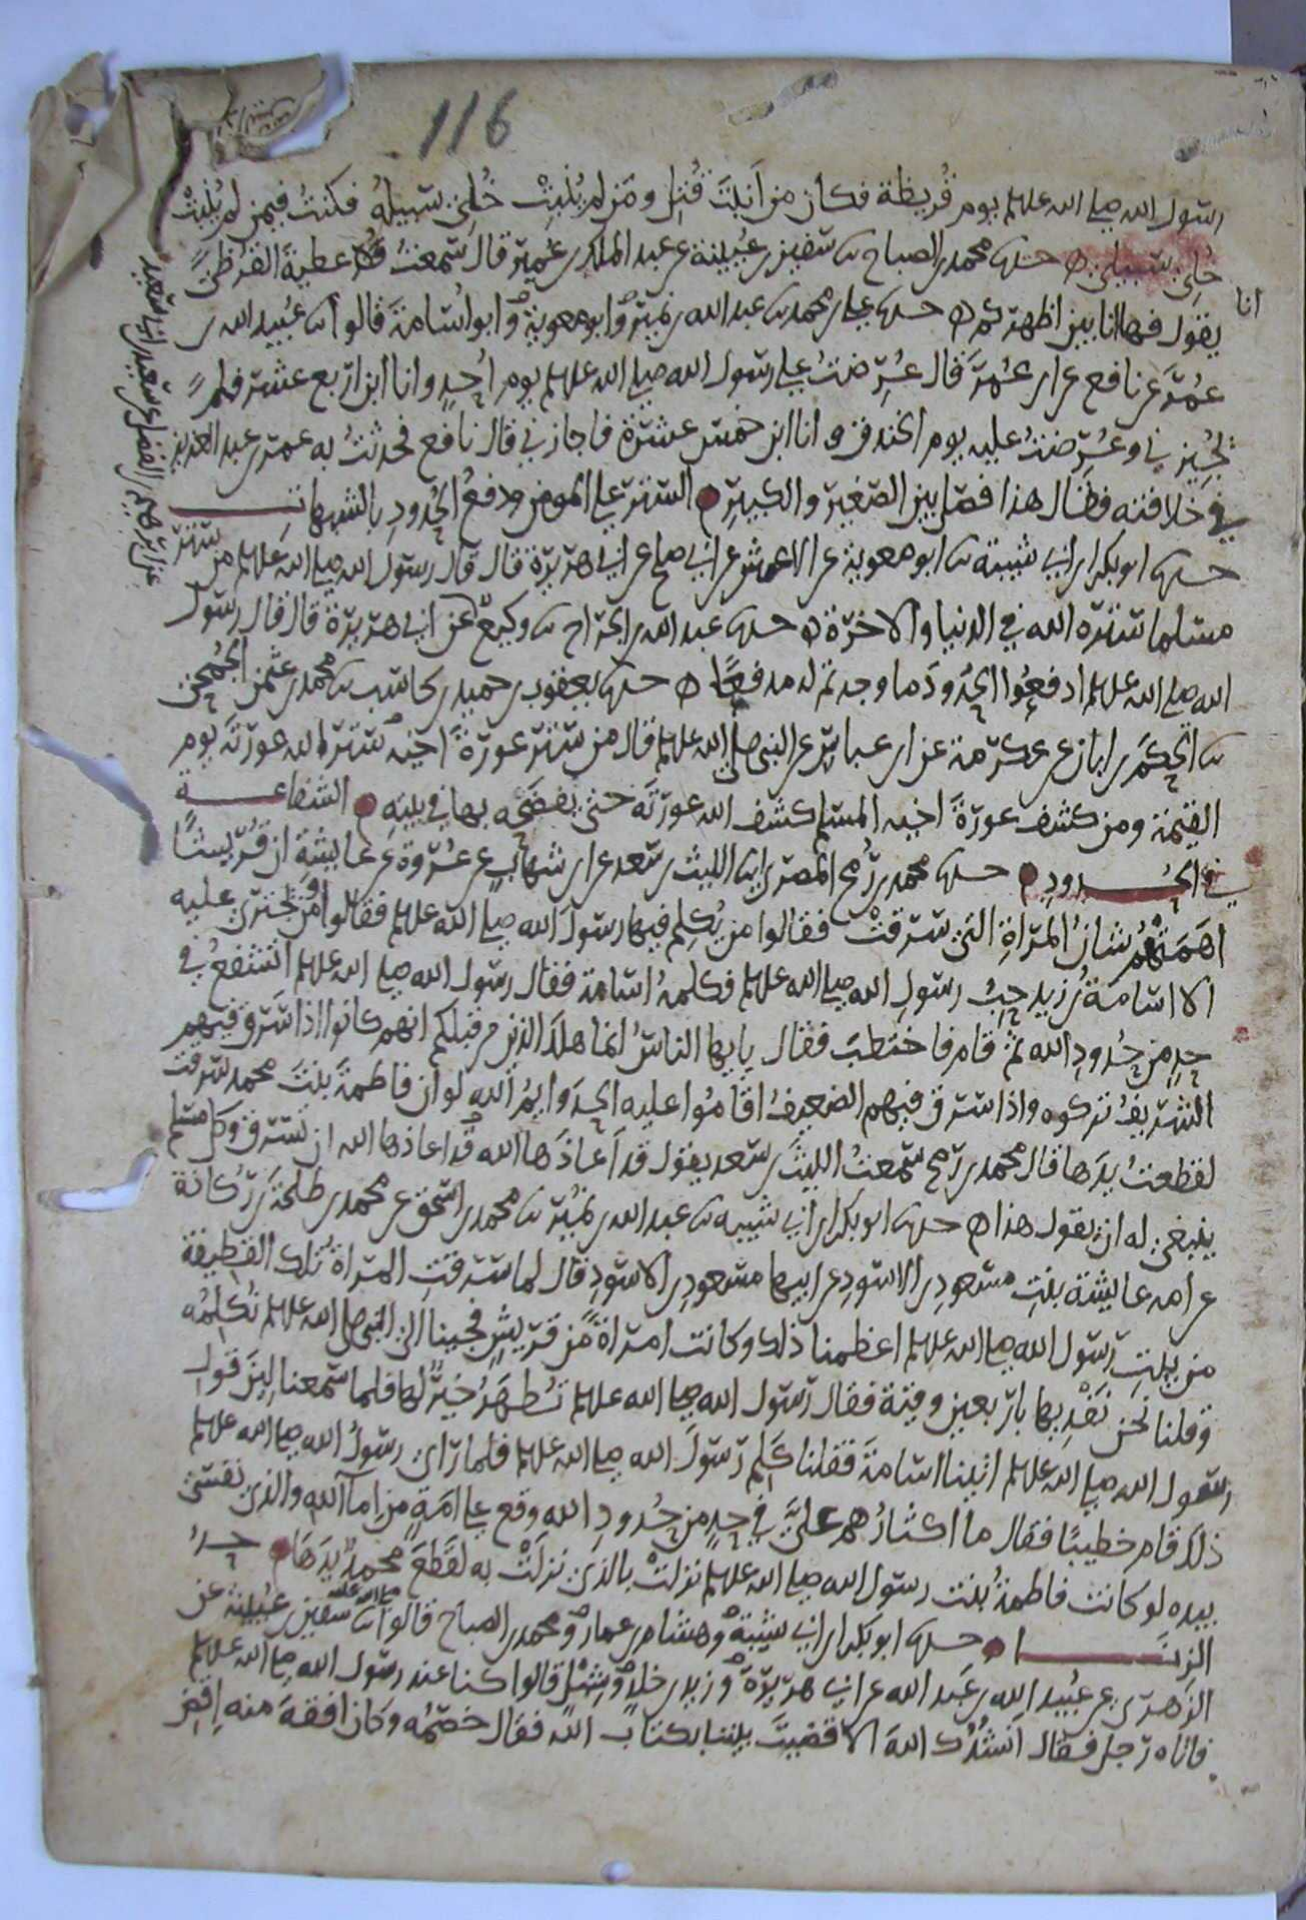 116
رسول الله صلى الله عليه وسلم يوم قُريظة فكان من اَنبتَ قُتِل ومَن لم يُنبِتْ خُلِىَ سَبيلُه فكنتُ فيمن لم يُنبِتْ
خُلِىَ سبيلى ه حدثنا محمد بن الصباح نا سفين بن عيينة عن عبد الملك بن عُمير قال سمعتُ عطية القُرظىَّ
يقول فها انا بين اظهركم ه حدثنا على بن محمد نا عبد الله بن نمير وابو معوية وابو اُسامةَ قالوا نا عُبيد الله بن
انا
عُمَرَ عن نافع عن ابن عُمرَ قال عُرِضتُ على رسول الله صلى الله عليه وسلم يوم اُحدٍ وانا ابن اربع عشرة فلم
يُجِيزنى وعُرِضتُ عليه يوم الخندق وانا ابن خمس عشرة فاجازنى قال نافع فحدثتُ به عمر بن عبد العزيز
فى خلافته فقال هذا فصل بين الصغير والكبير ه الستر على المومن ودفعُ الحُدودِ بالشبهات
حدثنا ابو بكر ابن ابى شيبة نا ابو معوية عن الاعمش عن ابى صالح عن ابى هريرة قال قال رسول الله صلى الله عليه وسلم من ستر
مسلما ستره الله فى الدنيا والاخرة ه حدثنا عبد الله بن الجراح نا وكيع عن ابى هريرة قال قال رسول
عن ابرهيم بن الفضل عن سعيد بن ابى سعيد
الله صلى الله عليه وسلم ادفعُوا الحُدودَ ما وجدتم له مدفعًا ه حدثنا يعقوب بن حميد بن كاسب نا محمد بن عثمن الجُمحى
نا الحكم بن ابان عن عكرمة عن ابن عباس عن النبى صلى الله عليه وسلم قال من ستر عورةَ اخيه ستر الله عورتَه يوم
القيمة ومن كشف عورةَ اخيه المسلم كشف الله عورتَه حتى يفضَحَه بها فى بيته ه الشفاعة
فى الحدود ه حدثنا محمد بن رُمح المصرى انا الليث بن سعد عن ابن شهابٍ عن عُروة عن عايشة ان قُريشًا
اهَمَّتْهُمْ شانُ المراةِ التى سرقتْ فقالوا من يُكلم فيها رسولَ الله صلى الله عليه وسلم فقالوا ومن يَجترئ عليه
الا اسامةُ بن زيد حِبُّ رسولِ الله صلى الله عليه وسلم فكلمهُ اسامة فقال رسول الله صلى الله عليه وسلم اتشفعُ فى
حدٍ من حُدودِ الله ثم قام فاختطبَ فقال يايها الناسُ انما هلكَ الذين من قبلكم انهم كانوا اذا سَرق فيهم
الشريفُ تركوه واذا سرق فيهم الضعيفُ اقامُوا عليه الحدَ وايمُ اللهِ لو ان فاطمةَ بنتَ محمد سرقت
لقطعتُ يدَها قال محمد بن رُمح سمعتُ الليثَ بن سعد يقول قد اَعاذَها الله قد اعاذها الله ان تسرق وكل مسلم
ينبغى له ان يقول هذا ه حدثنا ابو بكر ابن ابى شيبه نا عبد الله بن نُمير نا محمد بن اسحق عن محمد بن طلحة بن رُكانة
عن امه عايشةَ بنتِ مسعودِ بن الاسودِ عن ابيها مسعودِ بن الاسودِ قال لما سَرقتِ المراة تلك القطيفة
من بيتِ رسول الله صلى الله عليه وسلم اعظمنا ذلك وكانت امراةً من قريشٍ فجينا الى النبى صلى الله عليه وسلم نُكلِمُه
وقلنا نحن نَفْدِيها باربعين وقية فقال رسول الله صلى الله عليه وسلم تُطهَرُ خيرٌ لها فلما سمعنا لِينَ قولِ
رسول الله صلى الله عليه وسلم اتينا اسامةَ فقلنا كَلِم رسولَ الله صلى الله عليه وسلم فلما راى رسولُ الله صلى الله عليه وسلم
ذلك قام خطيبًا فقال ما اكثارُكم علىَّ فى حدٍ من حُدودِ الله وقع على امَةٍ من اِماَ الله والذى نفسى
بيده لو كانت فاطمةُ بنت رسول الله صلى الله عليه وسلم نزلتْ بالذى نزلَتْ به لقَطَعَ محمدٌ يدَها ه حدُ
الزنا ه حدثنا ابو بكر ابن ابى شيبة وهشام بن عمار ومحمد بن الصباح قالوا نا سفين بن عيينة عن
الزهرى عن عُبيد الله بن عَبد الله عن ابى هريرة وزيد بن خلدٍ وشِبْل قالوا كنا عند رسول الله صلى الله عليه وسلم
فاتاه رجل فقال اَنشُدُك اللهَ الا قضيتَ بيننا بكتاب الله فقال خصمُه وكان افقهَ منه اِقضِ